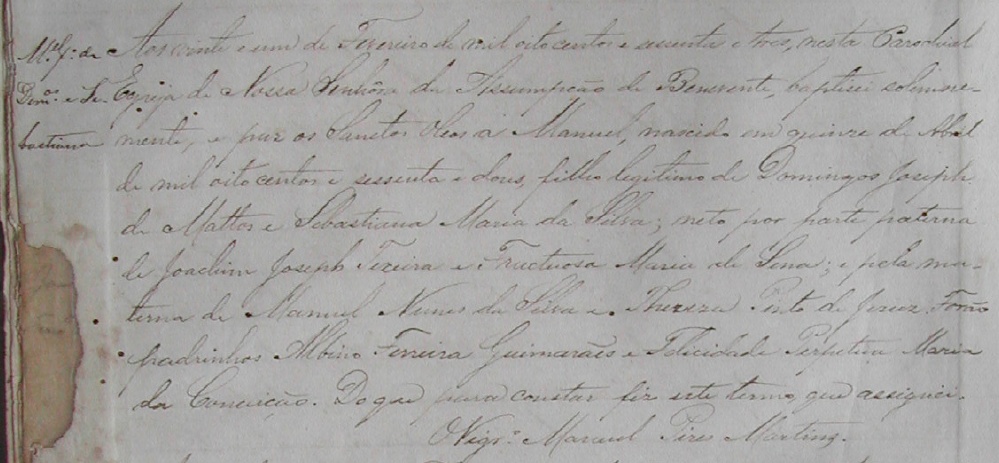 M.el f.º de
Dom.os e Se-
bastiana
Aos vinte e um de Fevereiro de mil oitocentos e sessenta e tres, nesta Parochial
Egreja de Nossa Senhora da Assumpção de Benevente, baptisei solimne-
mente, e puz os Sanctos Oleos a Manuel, nascido em quinze de Abril
de mil oitocentos e sessenta e dous, filho legitimo de Domingos Joseph
de Mattos e Sebastiana Maria da Silva; neto por parte paterna
de Joachim Joseph Texeira e Fructuosa Maria de Sena; e pela ma-
terna de Manuel Nunes da Silva e Thereza Pinto de Jesuz. Forão
padrinhos Albino Ferreira Guimarães e Felicidade Perpetua Maria
da Conceição. Do que para constar fiz este termo, que assignei.
O Vigr.º Manuel Pires Martins.